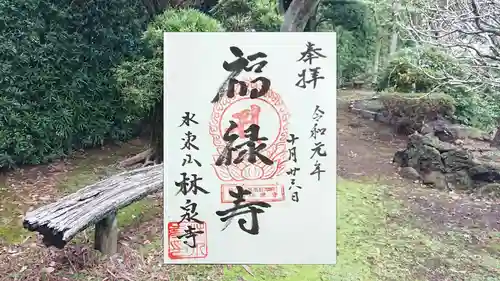 奉拝
令和元年
十月廿三日
福禄寺
永東山
林泉寺